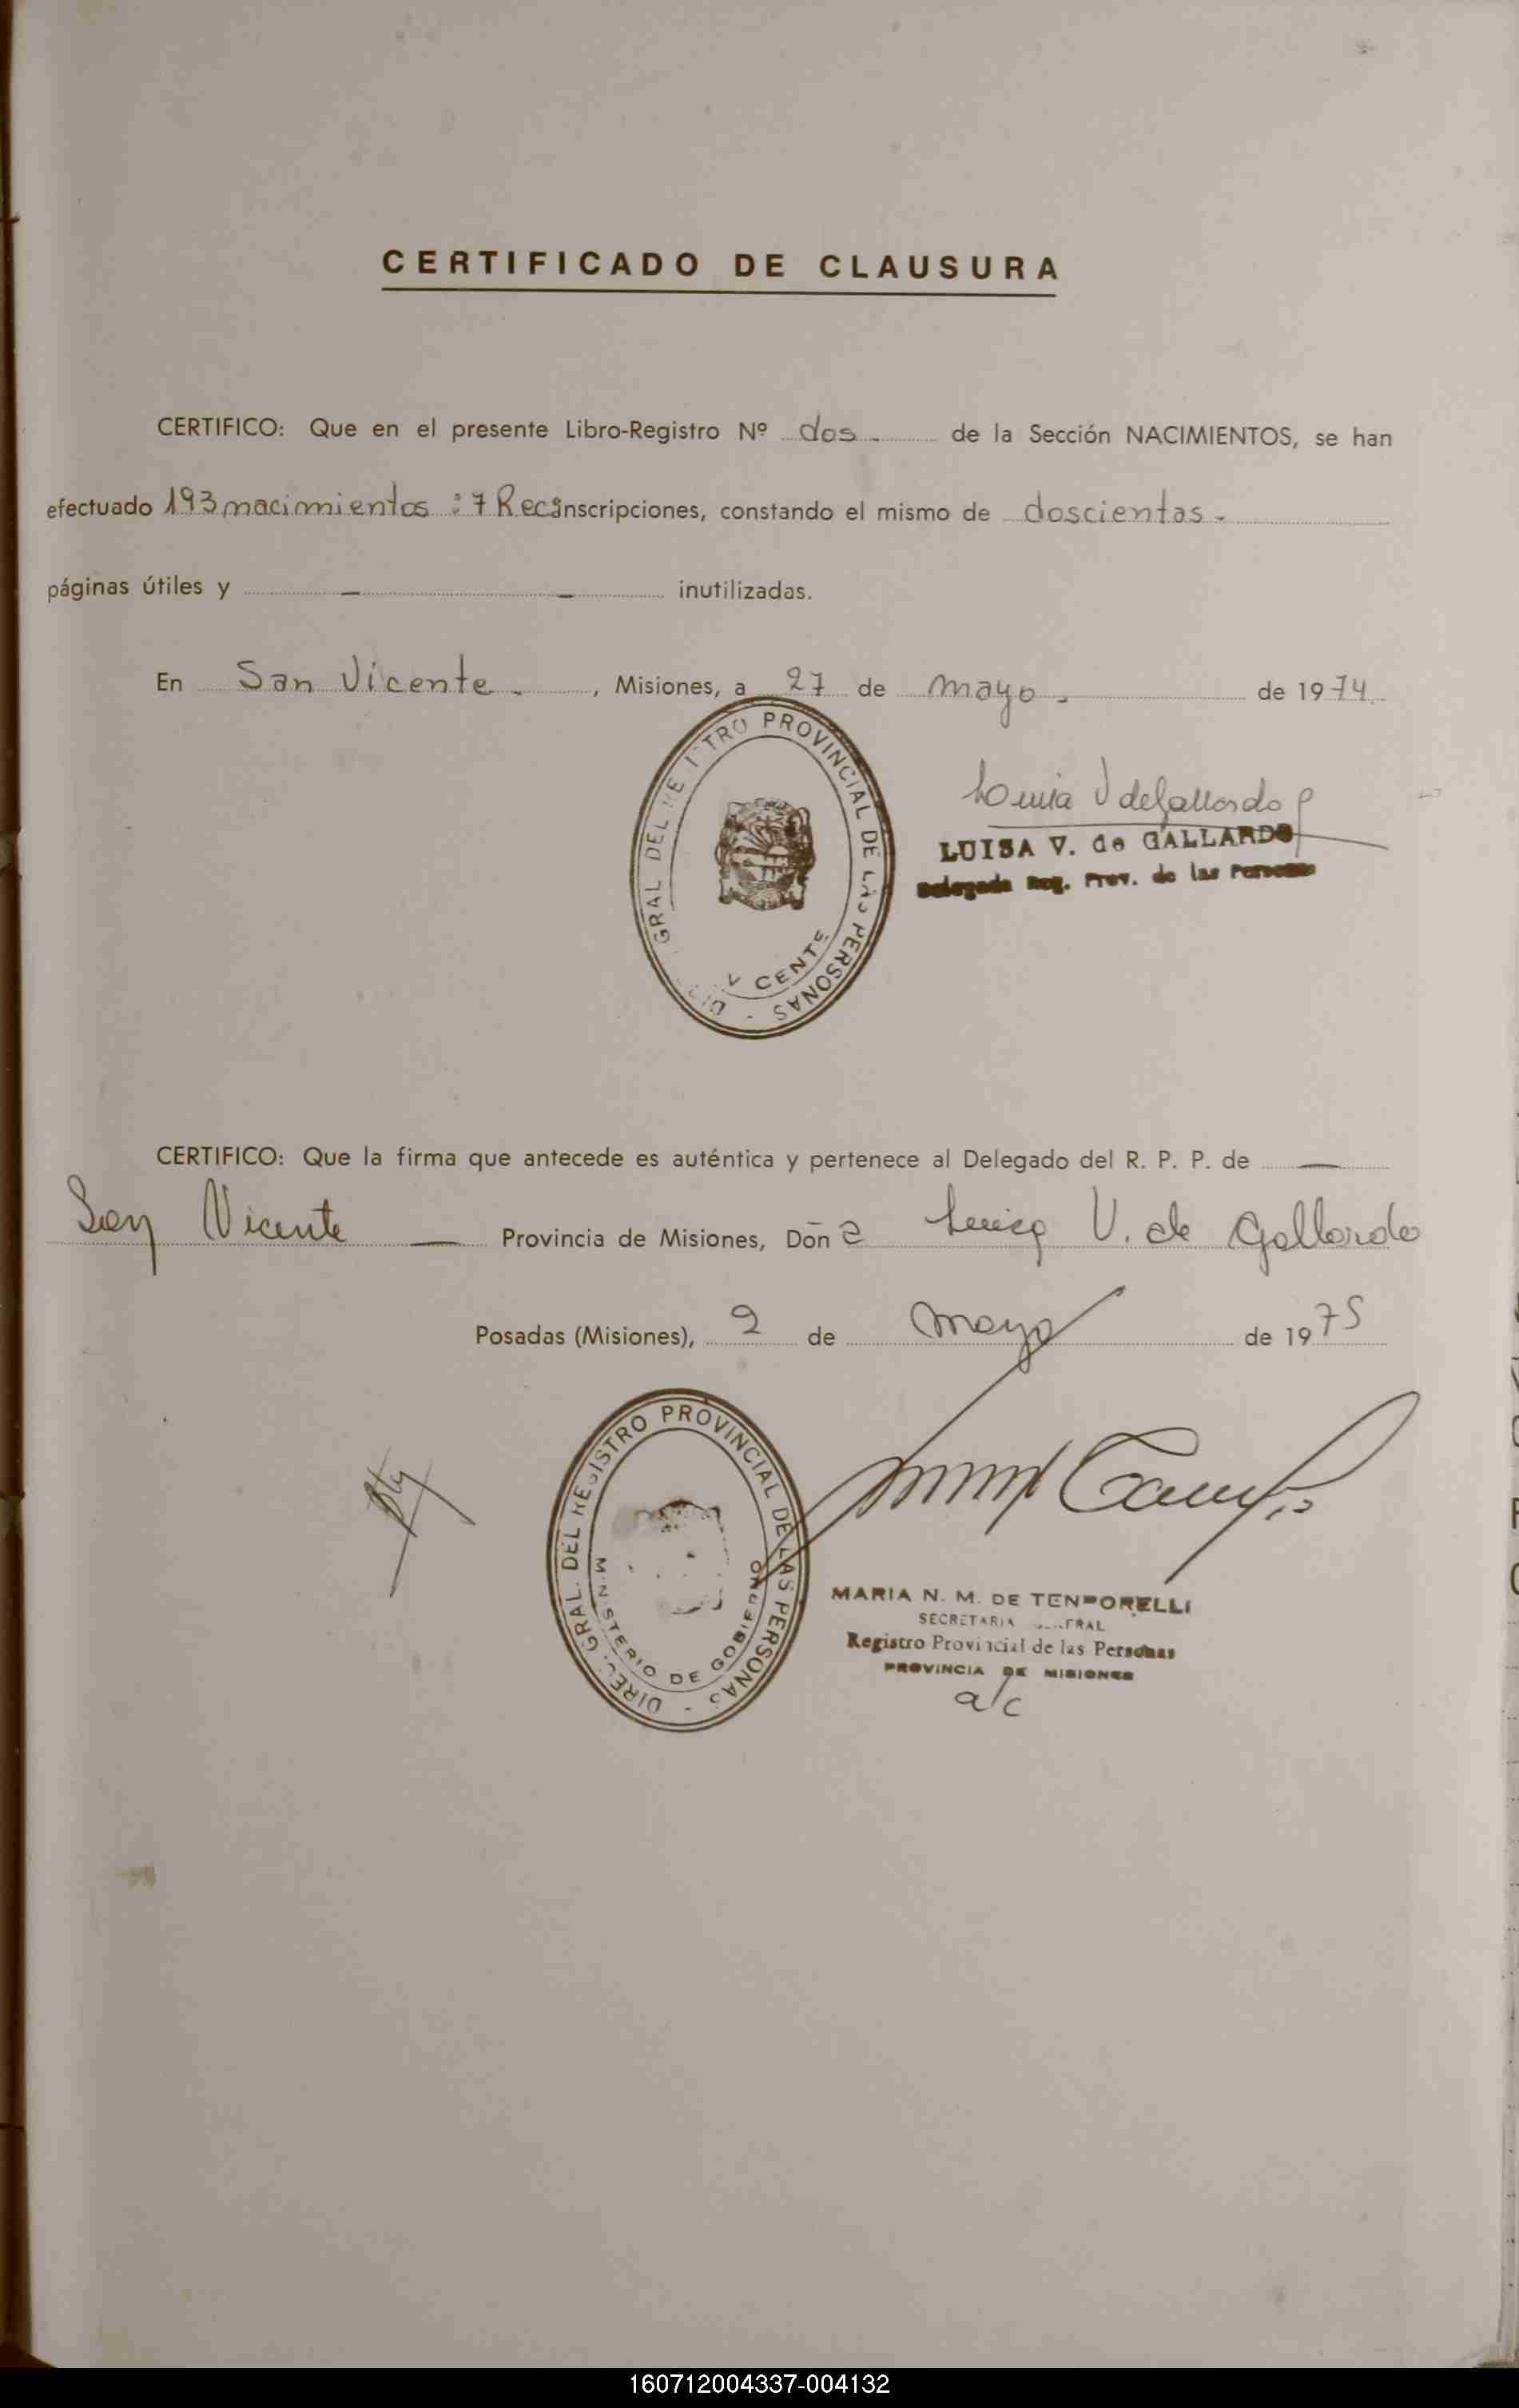 CERTIFICADO DE CLAUSURA
CERTIFICO: Que en el presente Libro-Registro Nº dos. de la Sección NACIMIENTOS, se han
efectuado 193 nacimientos : 7 Rec. inscripciones, constando el mismo de doscientas.
páginas útiles y — — inutilizadas.
En San Vicente. , Misiones, a 27 de mayo. de 1974.
GRAL DEL REGISTRO PROVINCIAL DE LAS PERSONAS -
VICENTE
Luisa V de Gallardo
LUISA V. de GALLARDO
Delegada Reg. Prov. de las Personas
CERTIFICO: Que la firma que antecede es auténtica y pertenece al Delegado del R. P. P. de —
San Vicente — Provincia de Misiones, Don a Luisa V. de Gallardo
Posadas (Misiones), 2 de mayo de 1975
DIREC. GRAL. DEL REGISTRO PROVINCIAL DE LAS PERSONAS -
MINISTERIO DE GOBIERNO
MARIA N. M. DE TEMPORELLI
SECRETARIA GENERAL
Registro Provincial de las Personas
PROVINCIA DE MISIONES
a/c
160712004337-004132